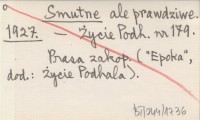 Smutne ale prawdziwe.
1927. – Życie Podh. nr 179.
Prasa zakop. ("Epoka",
dod.: Życie Podhala).